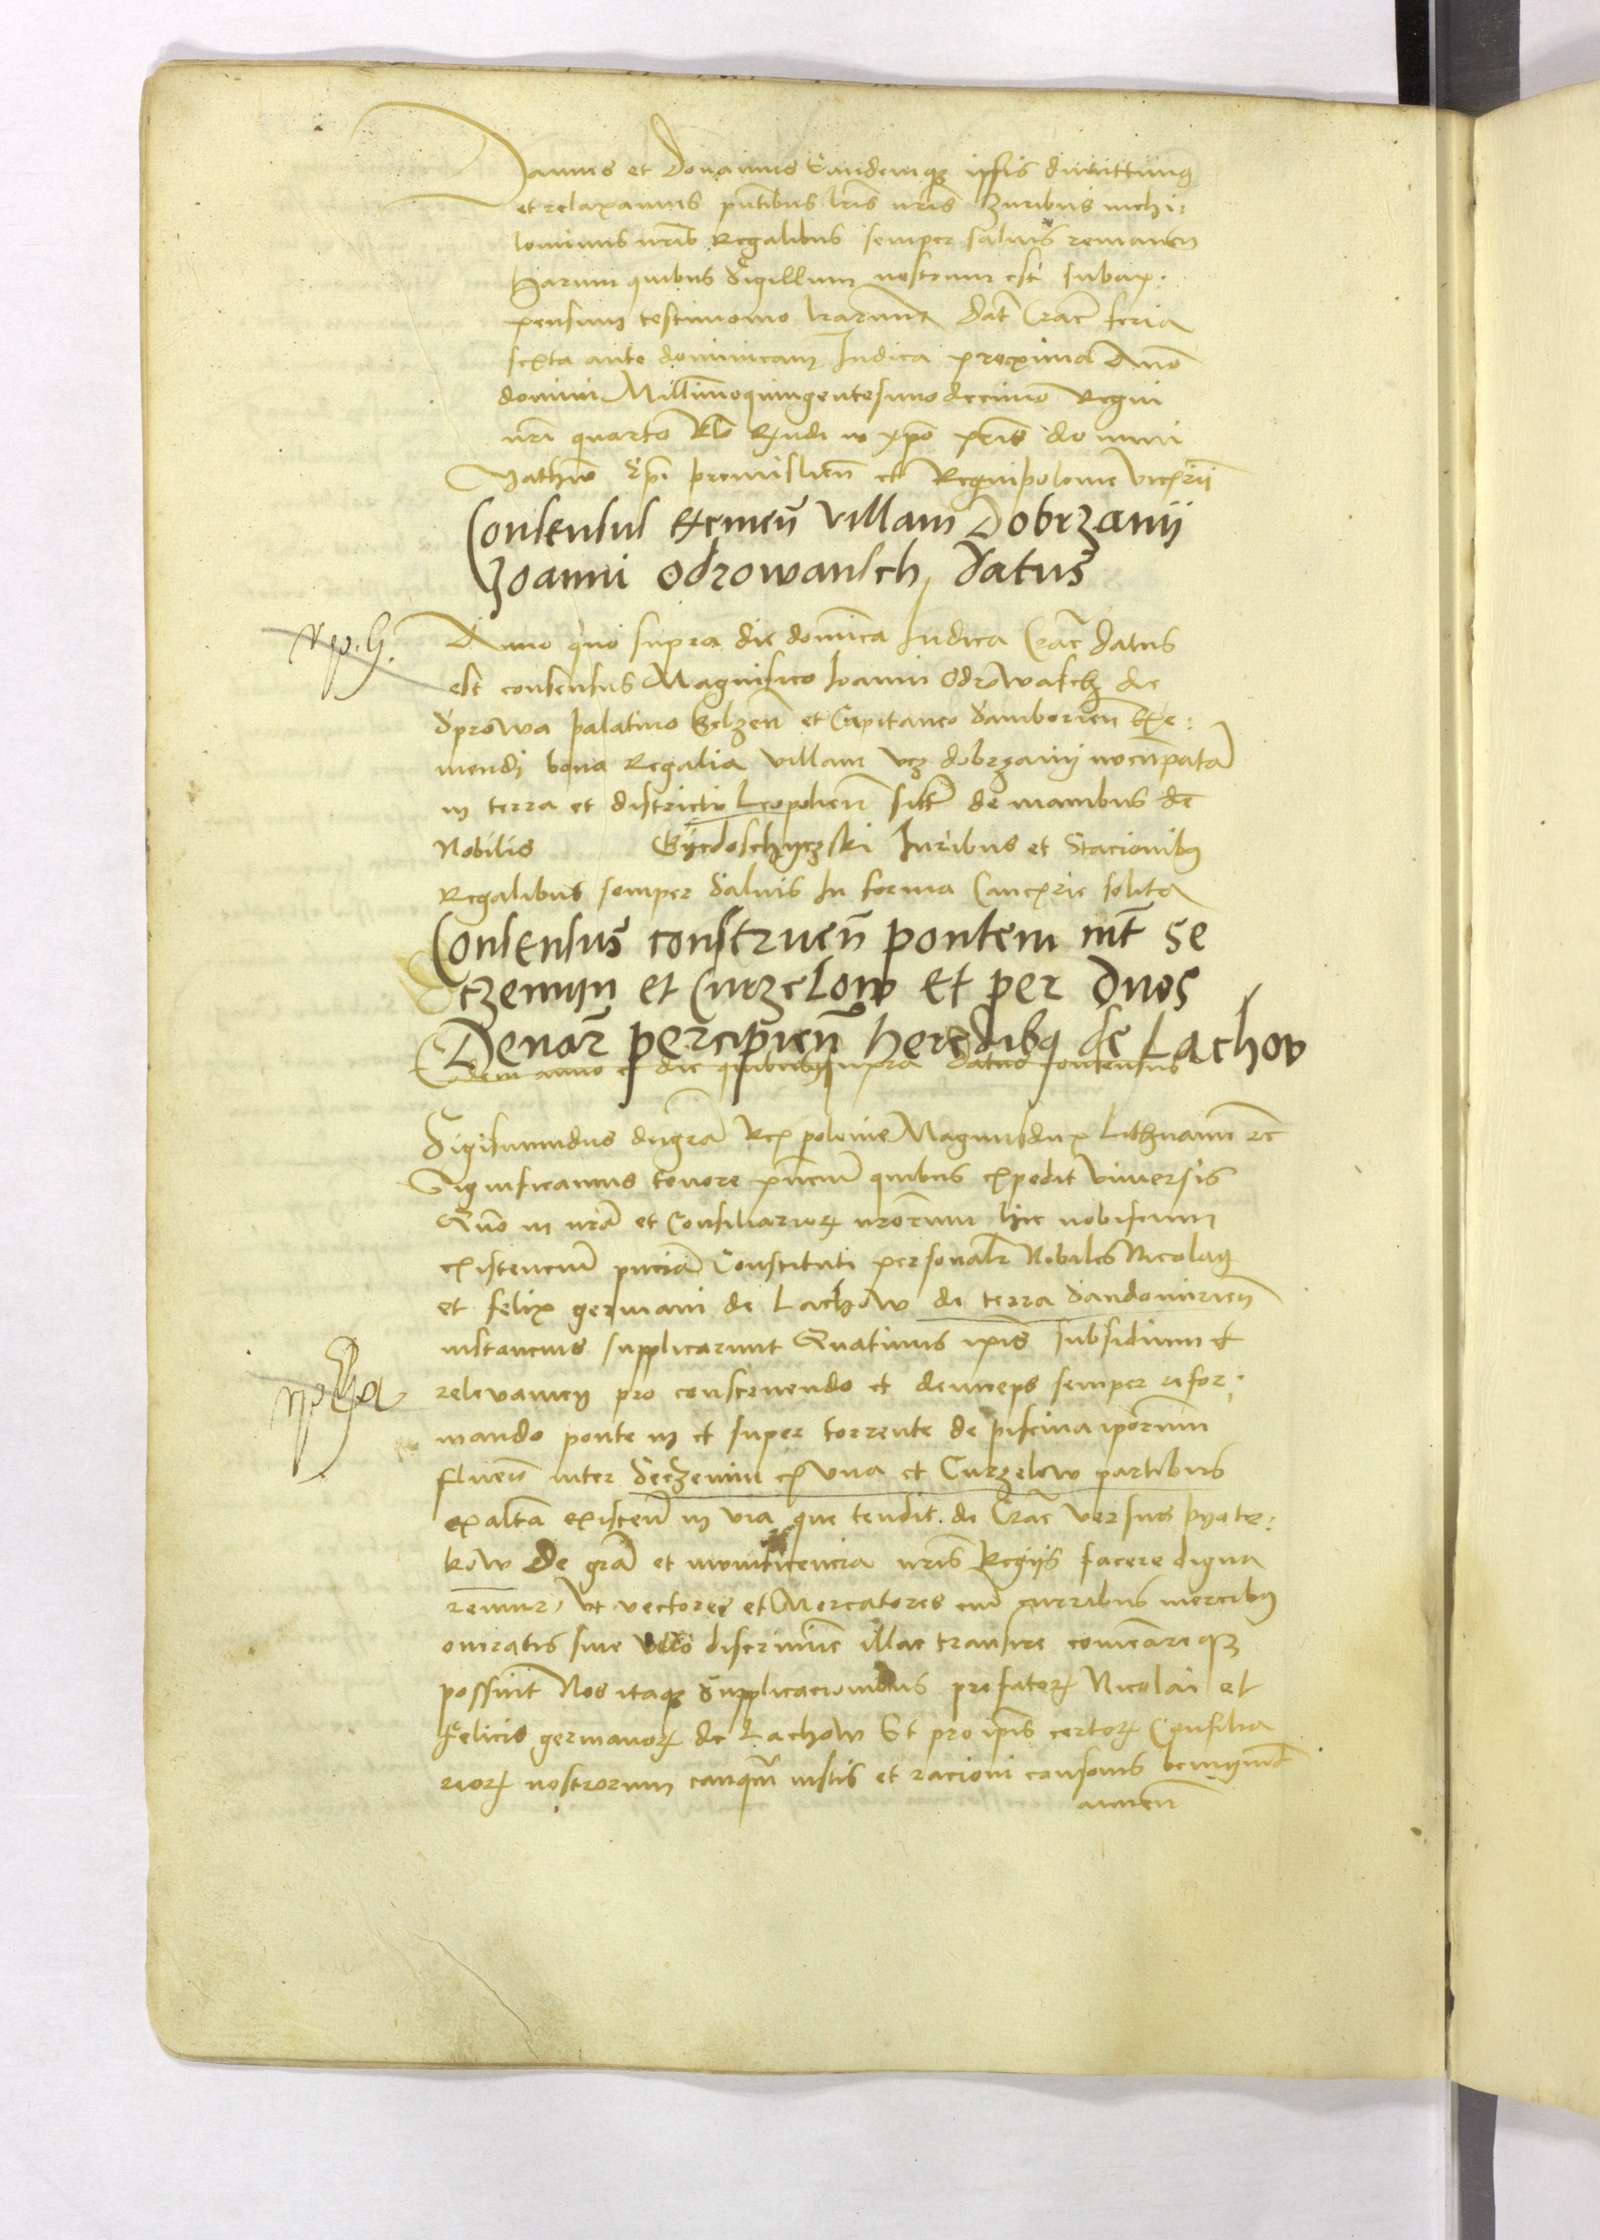 Damus et Donamus Eandemqz ipsis dimittimus
et relaxamus pntibus lris nris Juribus nichi:
lominus nris Regalibus semper saluis remanen
Harum quibus Sigillum nostrum est subap:
pensum testimonio lrarum Dat Crac feria
sexta ante dominicam Judica proxima Anno
domini Millimoquingentesimo decimo Regni
nri quarto Rlo Rndi in xpo pris domini
Mathie Epi premislien et Regni polonie vicecrii
Consensus Exemen villam Dobrzanij
Joanni Odrowansch datus
Anno quo supra die domica Judica Crac datus
est consensus Magnifico Joanni Odrowasch de
Sprowa palatino Belzen et Capitaneo Samborien Exe:
mendj bona Regalia villam vcz dobrzanij nocupata
in terra et districtu Leopolien sitt de manibus de
Nobilis Juribus et Stacionibus
Regalibus semper Saluis In forma Cancrie solita
Consensus construen pontem int Se
czemijn et Curzelow et per duos
Denar percipien heredibus de Lachow
Eodem anno et die quibus supra datus consensus
Sigismundus dei gra Rex polonie Magnusdux Lithuanie etc
Significamus tenore pncium quibus expedit vniuersis
Quo in nra et Consiliarior nrorum hic nobiscum
existencium pncia Constituti personalr Nobiles Nicolaus
et felix germani de Lachow de terra Sandomirien
instancius supplicarunt Quatinus ipis subsidium et
relevamen pro construendo et deinceps semper refor:
mando ponte in et super torrente de piscina iporum
fluen inter Seczemin ex vna et Curzelow partibus
ex alta existen in via que tendit de Crac versus pyotr:
kow De gra et munificencia nris Regijs facere digna
remur, vt vectores et Mercatores cum curribus mercibus
oneratis sine vllo discrimine illac transire comeareqz
possint Nos itaqz Supplicacionibus prefator Nicolai et
Felicis germanor de Lachow Et pro ipis certor Consilia
rior nostrorum tanqm iustis et racioni consonis benignit
annuen